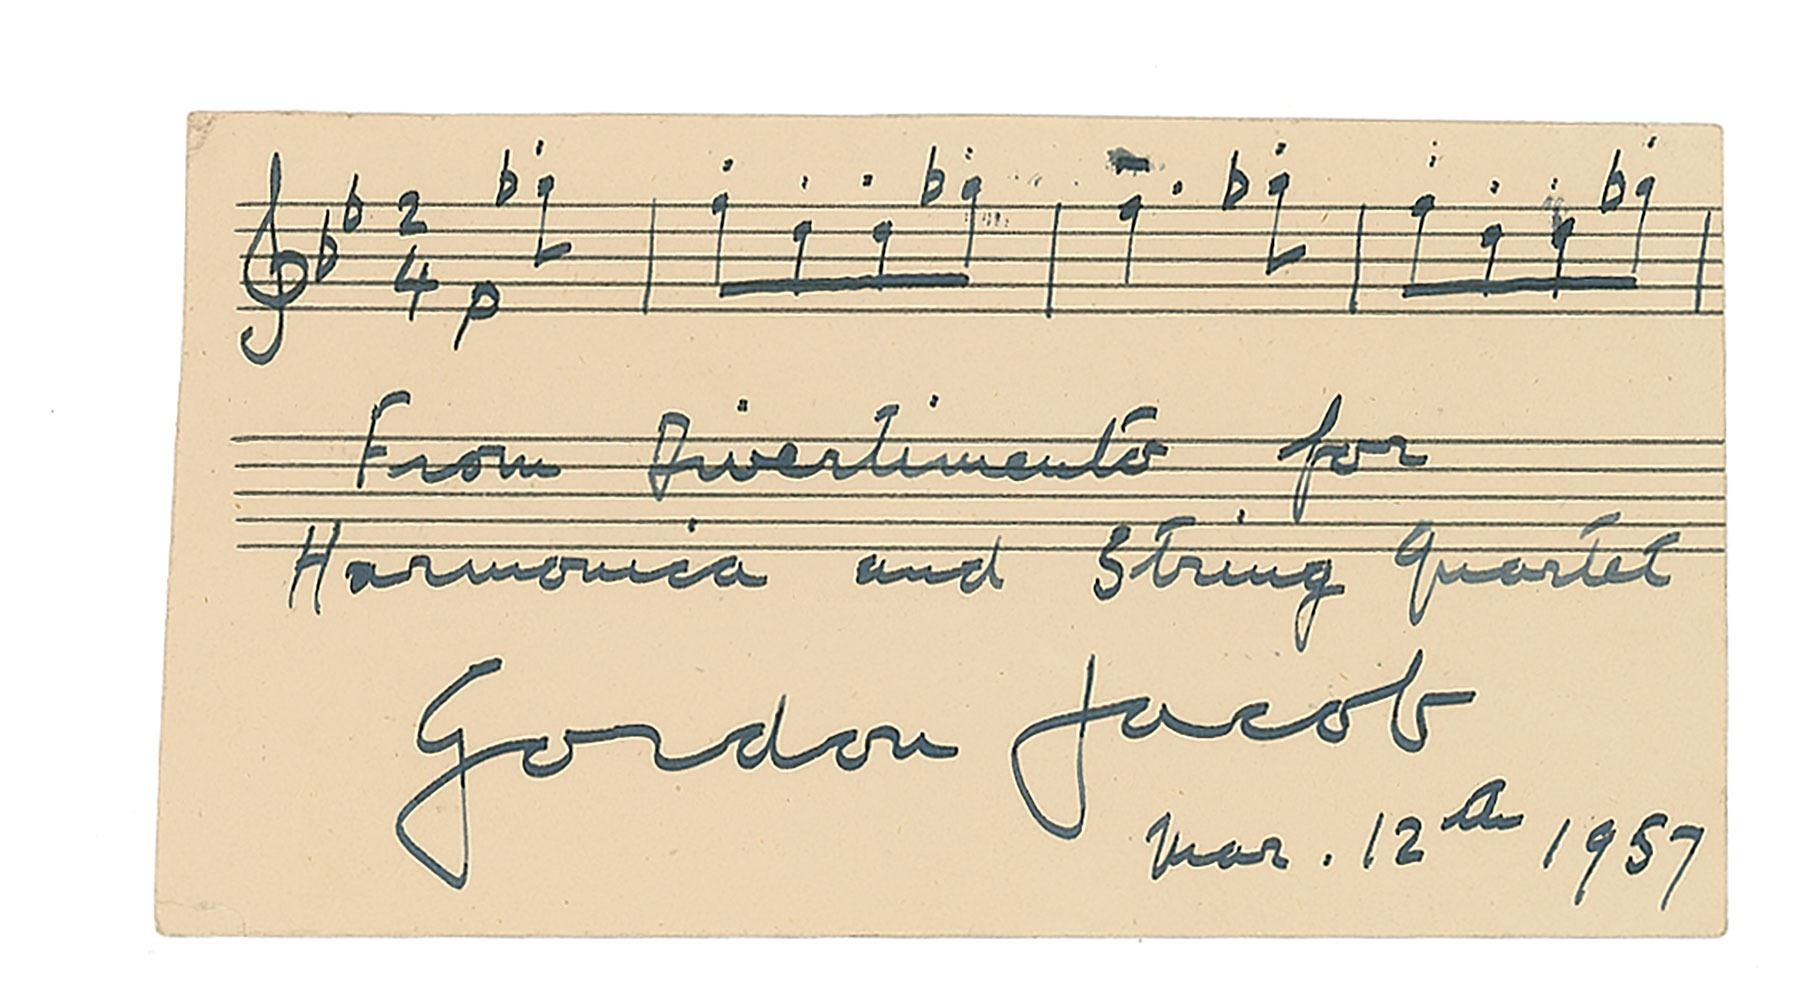 2
4 p
From Divertimento for
Harmonica and String Quartet
Gordon Jacob
Mar. 12th 1957